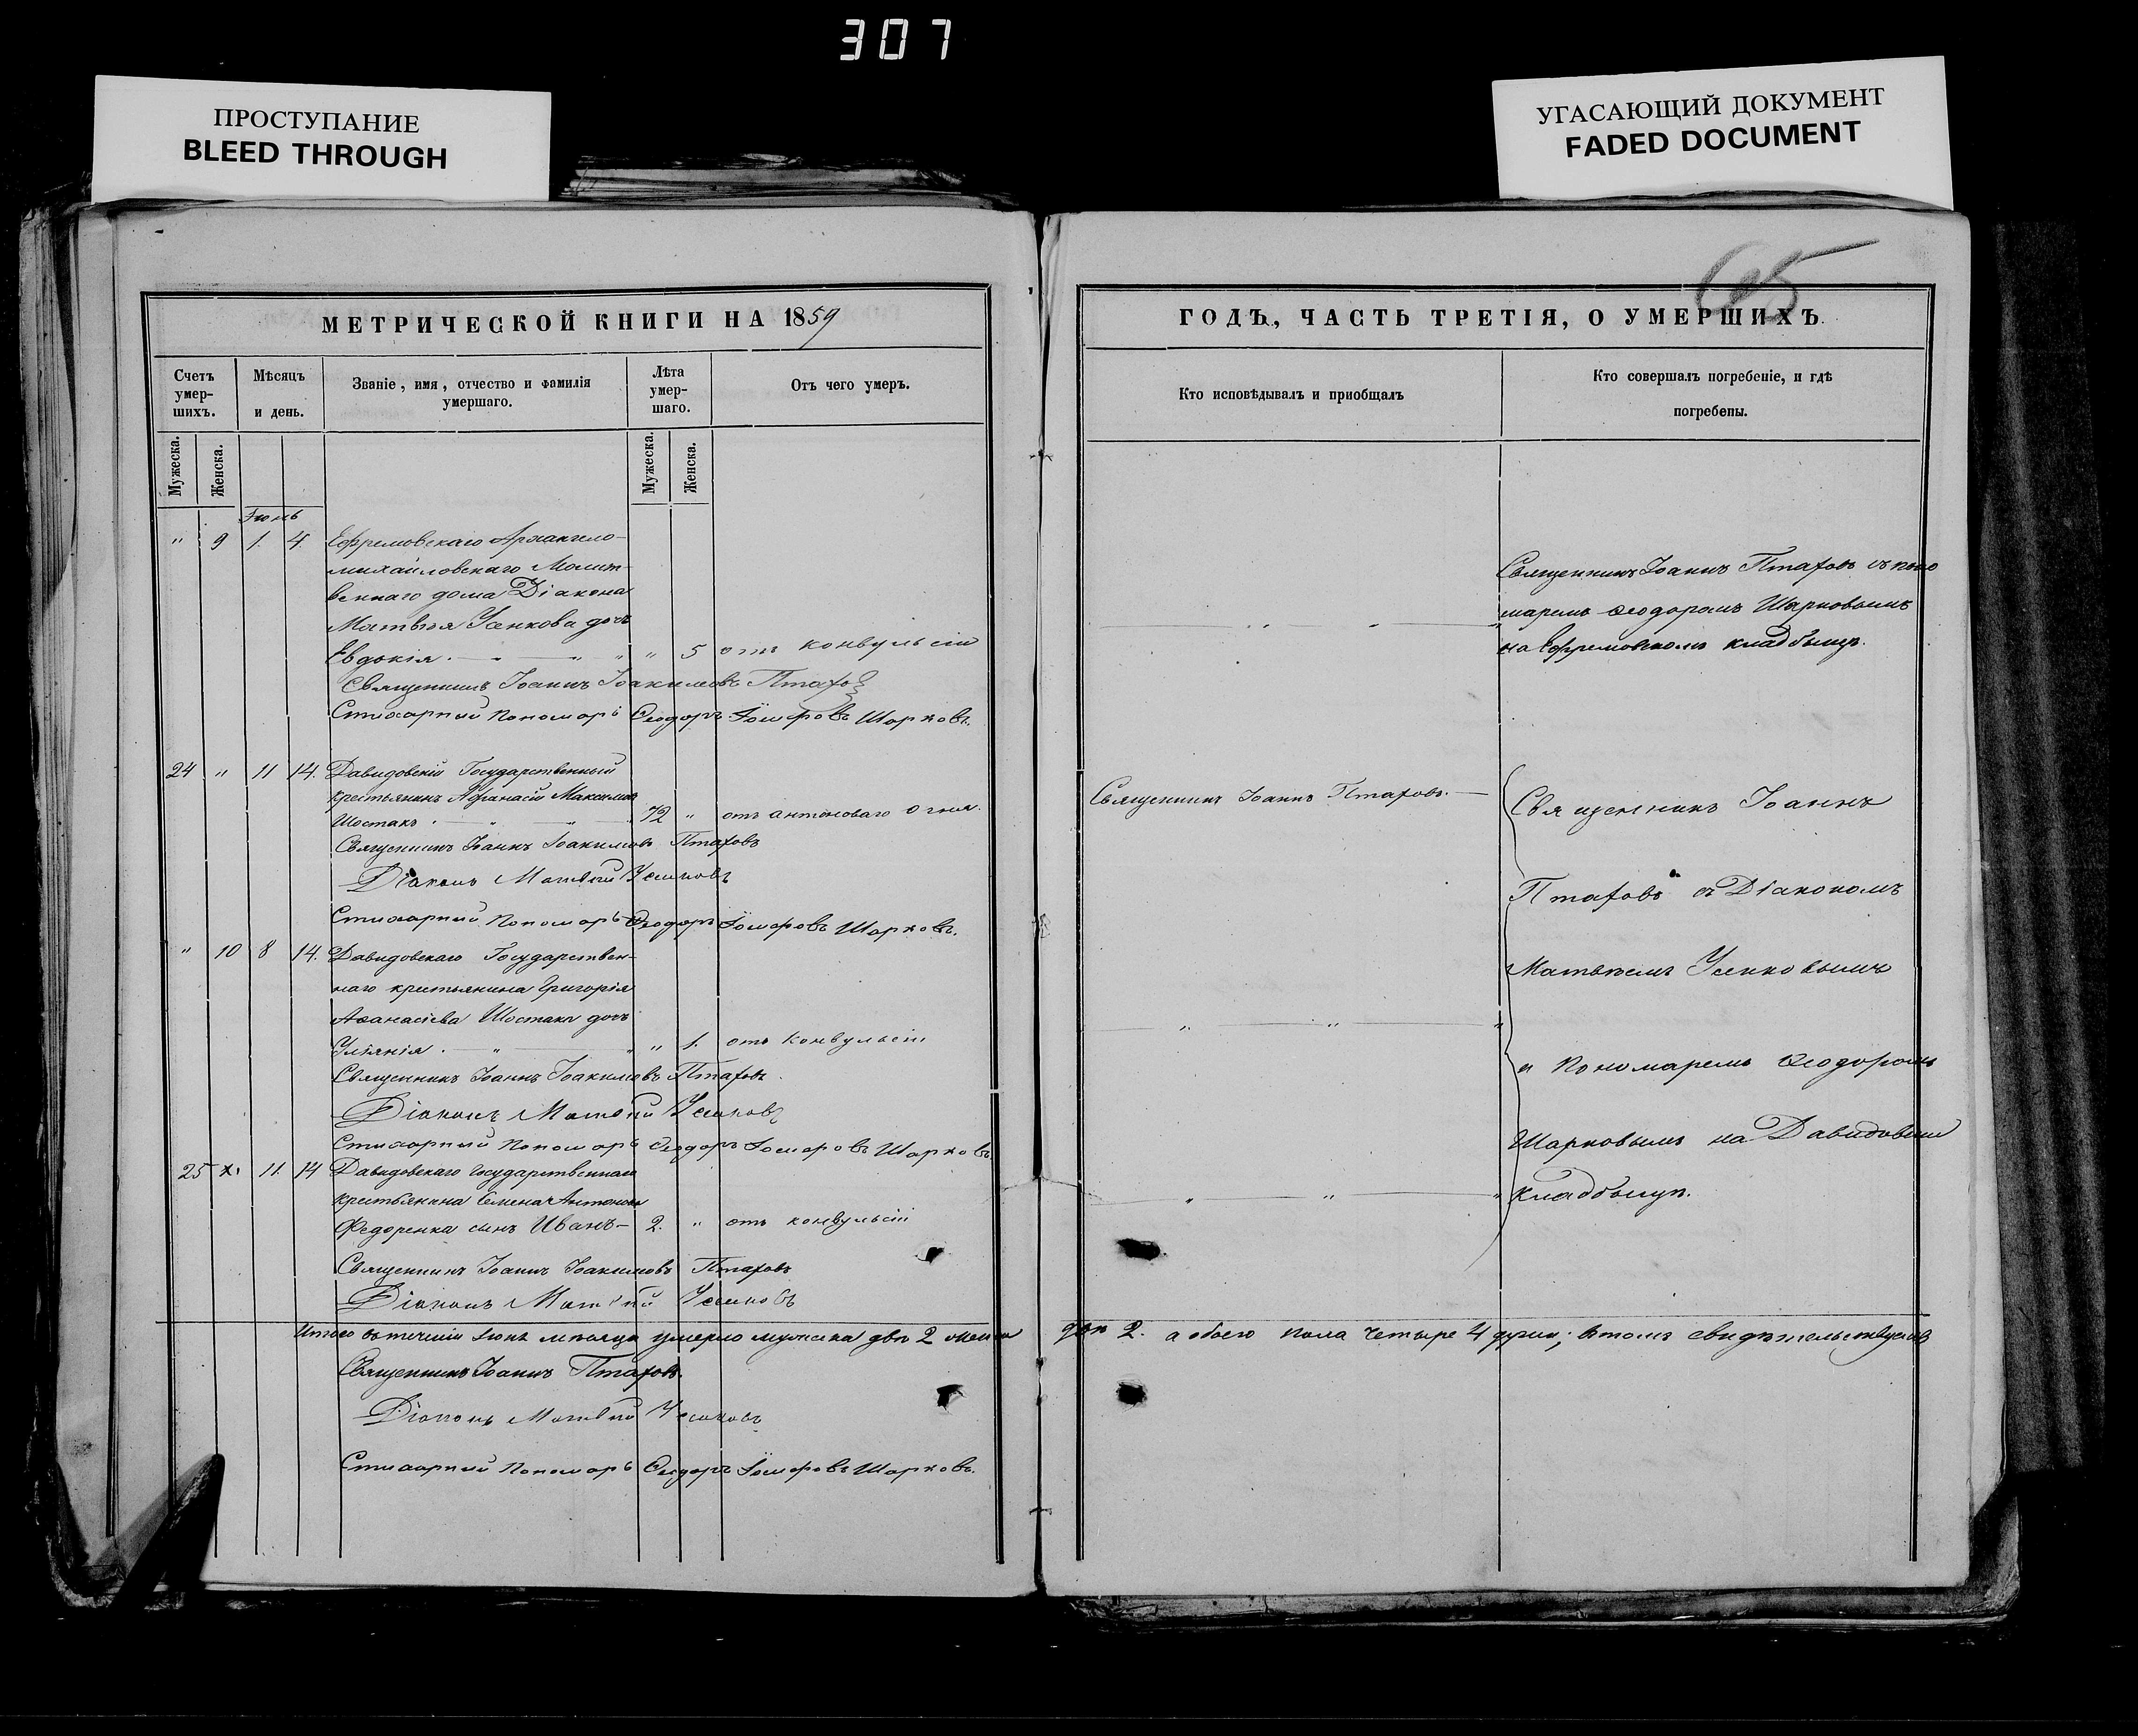 307
ПРОСТУПАНИЕ
BLEED THROUGH
УГАСАЮЩИЙ ДОКУМЕНТ
FADED DOCUMENT
МЕТРИЧЕСКОЙ КНИГИ НА 1859
Счетъ умер-шихъ.
Мѣсяцъ и день.
Званіе, имя, отчество и фамилія умершаго.
Лѣта умер-шаго.
Отъ чего умеръ.
Мужеска.
Женска.
Мужеска.
Женска.
Іюнь
" 9 1. 4. Ефремовскаго Архангело-
михайловскаго Молит-
веннаго дома Діакона
Матвѣя Усикова дочь
Евдокія " " 5 отъ конвульсіи
Священникъ Іоаннъ Іоакимовъ Птаховъ
Стихарный Пономарь Ѳеодоръ Іосифовъ Шарковъ.
24 " 11 14. Давидовскій Государственный
крестьянинъ Афанасій Максимовъ
Шостакъ " " 72 " отъ антоноваго огня.
Священникъ Іоаннъ Іоакимовъ Птаховъ
Діаконъ Матвѣй Усиковъ
Стихарный Пономарь Ѳеодоръ Іосифовъ Шарковъ.
" 10 8 14. Давидовскаго Государствен-
наго крестьянина Григорія
Аѳанасіева Шостака дочь
Уліянія " " " 1. отъ конвульсіи
Священникъ Іоаннъ Іоакимовъ Птаховъ.
Діаконъ Матвѣй Усиковъ
Стихарный Пономарь Ѳеодоръ Іосифовъ Шарковъ.
25 11 14 Давидовскаго государственнаго
крестьянина Семена Антонова
Федоренка сынъ Иванъ 2. " отъ конвульсіи
Священникъ Іоаннъ Іоакимовъ Птаховъ
Діаконъ Матвѣй Усиковъ
Итого въ теченіи Іюнѣ мѣсяца умерло мужеска два 2 женска
Священникъ Іоаннъ Птаховъ.
Діаконъ Матвѣй Усиковъ
Стихарный Пономарь Ѳеодоръ Іосифовъ Шарковъ.
ГОДЪ, ЧАСТЬ ТРЕТІЯ, О УМЕРШИХЪ.
Кто исповѣдывалъ и пріобщалъ
Кто совершалъ погребеніе, и гдѣ погребены.
Священникъ Іоаннъ Птаховъ съ поно
маремъ Ѳеодоромъ Шарковымъ
на Ефремовскомъ кладбищѣ.
Священникъ Іоаннъ Птаховъ.
Священникъ Іоаннъ
Птаховъ съ Діакономъ
Матвѣемъ Усиковымъ
и Пономаремъ Ѳеодоромъ
Шарковымъ на Давидовском
кладбищѣ.
двѣ 2. а обоего пола четыре 4 души; въ томъ свидѣтельствуемъ